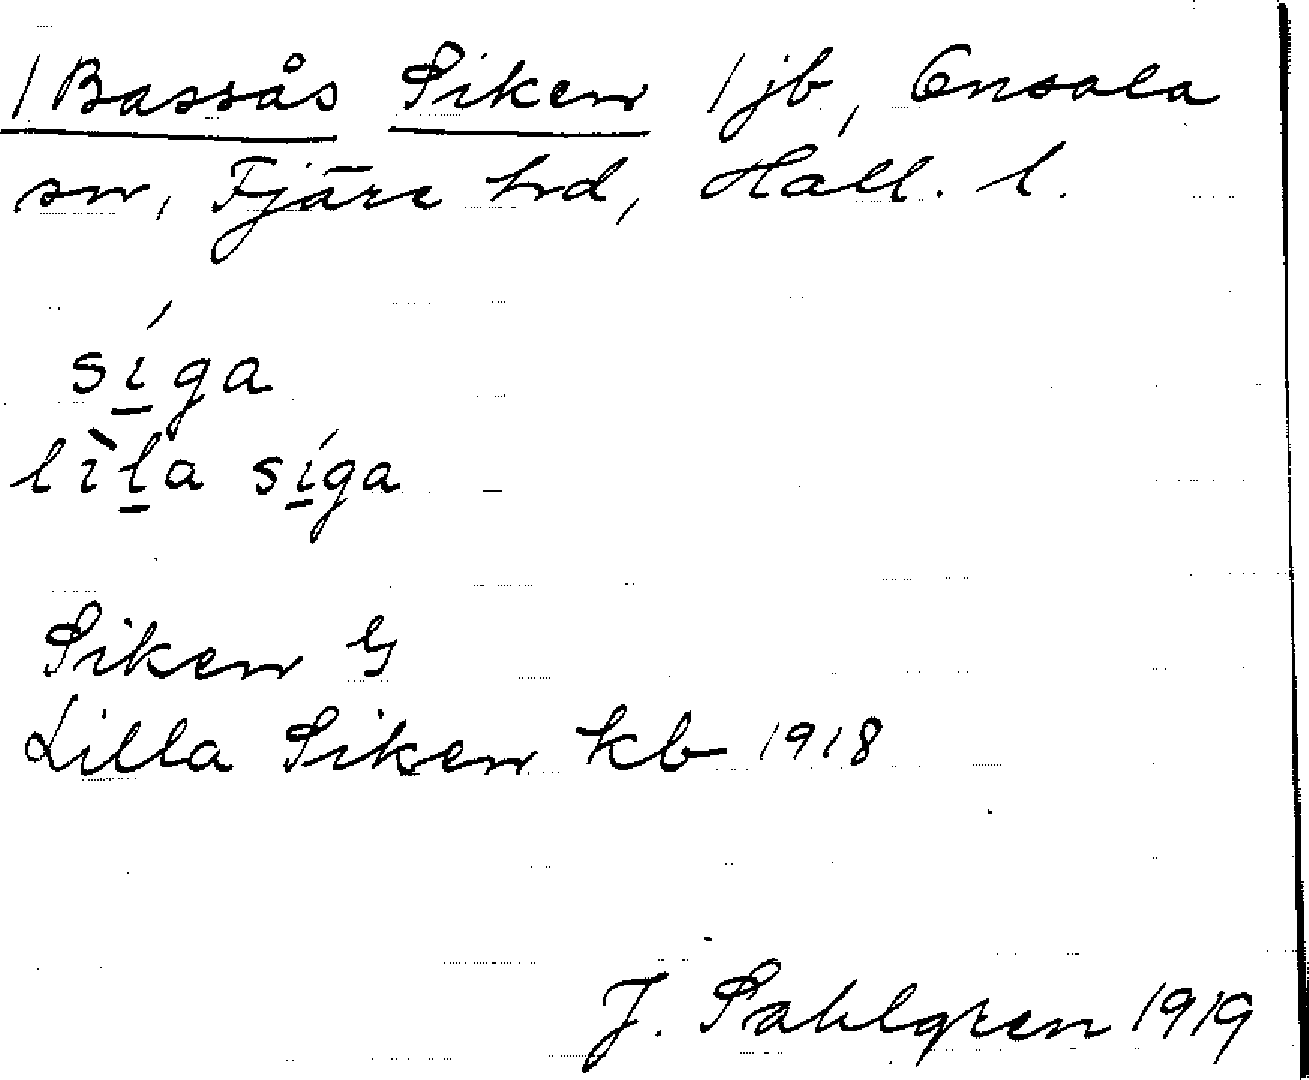 1 Bassås Siken 1 jb, Onsala
sn, Fjäre hrd, Hall. l.
síga
lìla síga
Siken G
Lilla Siken kb 1918
J. Sahlgren 1919